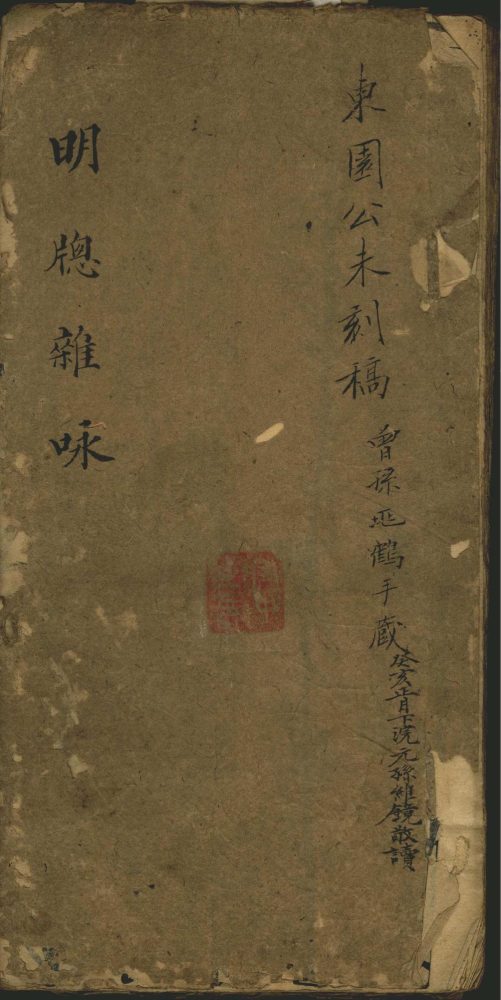 東園公未刻稿
曾孫廷鶴手藏
癸亥正月下浣元孫維鏡敬讀
明牕雜咏